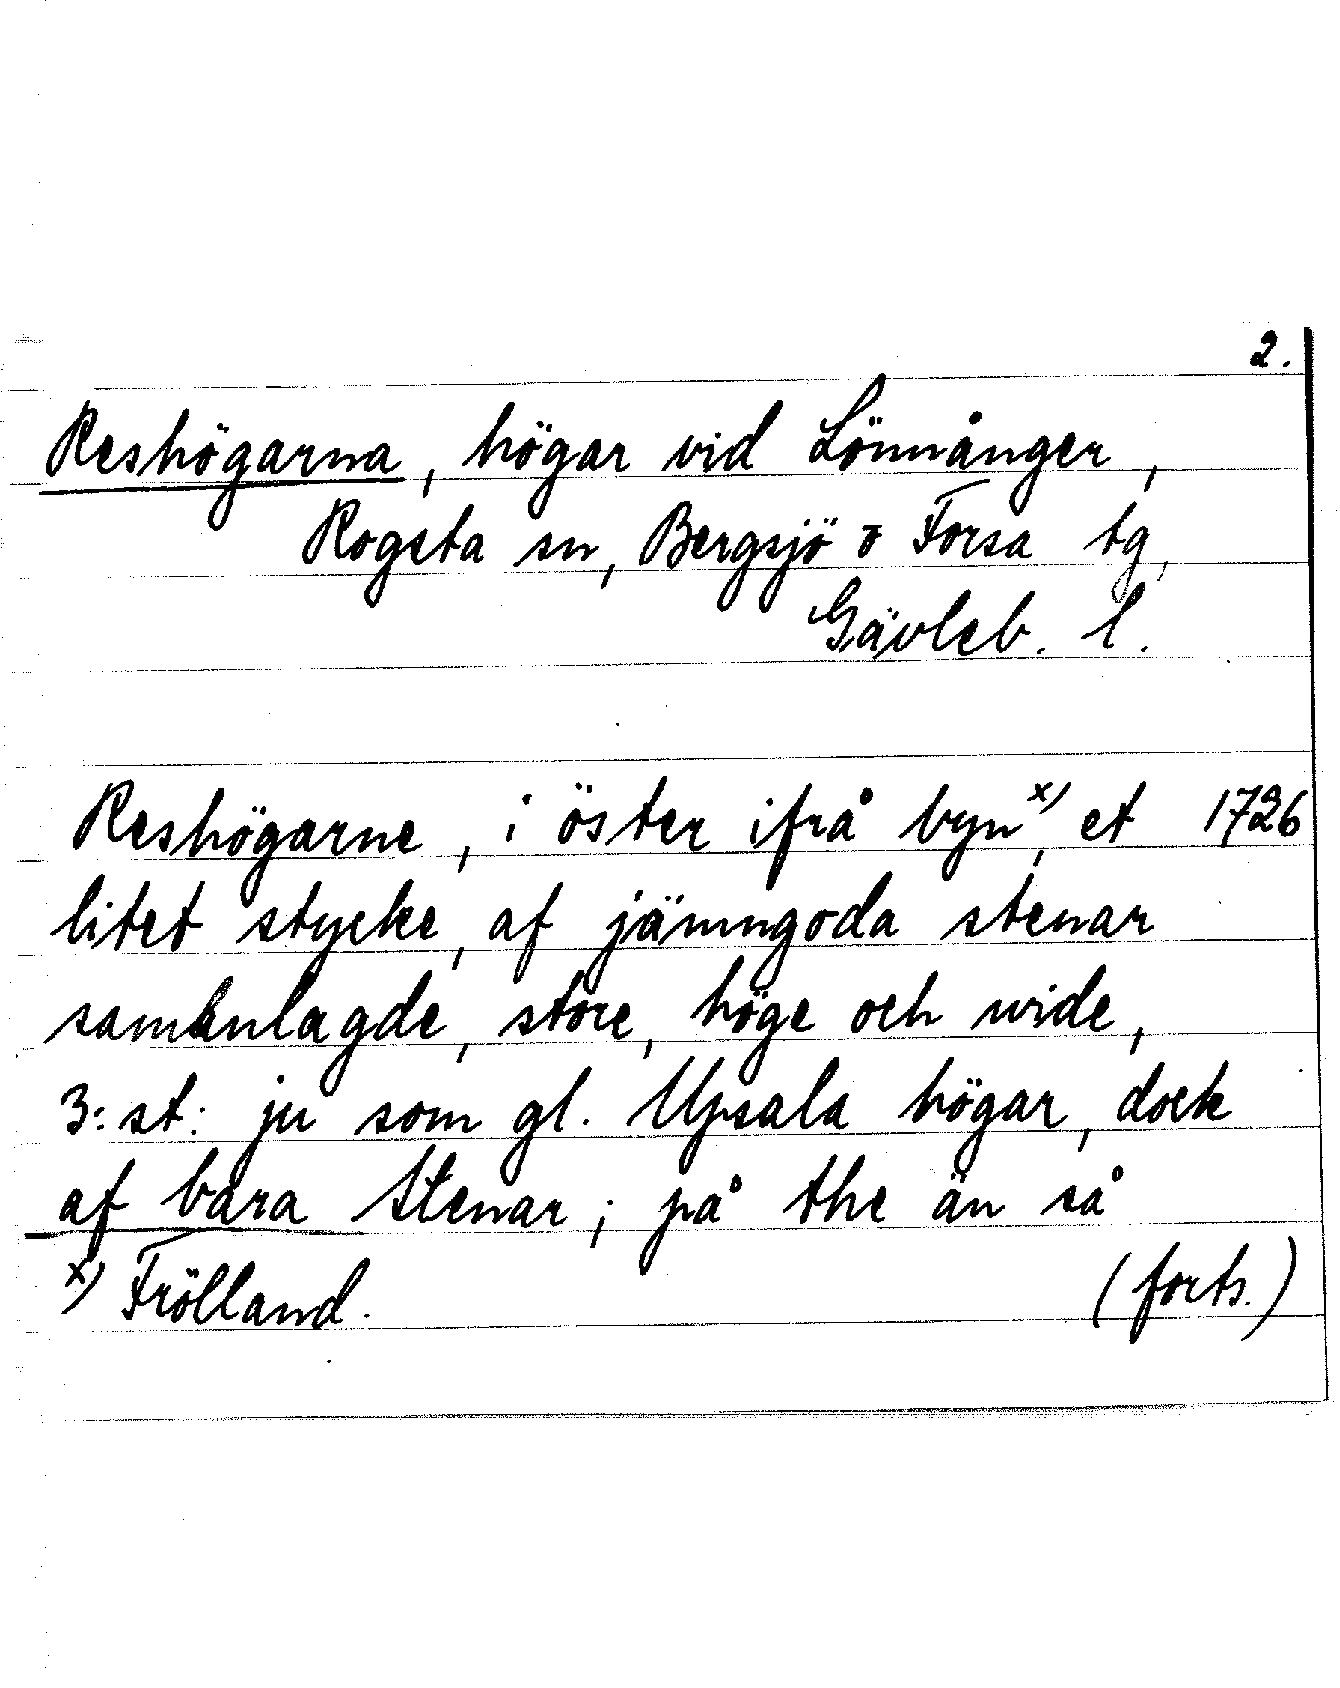 2.
Reshögarna, högar vid Lönnånger,
Rogsta sn, Bergsjö o Forsa tg,
Gävleb. l.
Reshögarne, i öster ifrå byn x), et 1726
litet stycke, af jämngoda stenar
samanlagde, store, höge och wide,
3: st: ju som gl. Upsala högar, dock
af bara Stenar; på the än så
x) Frölland. (forts.)